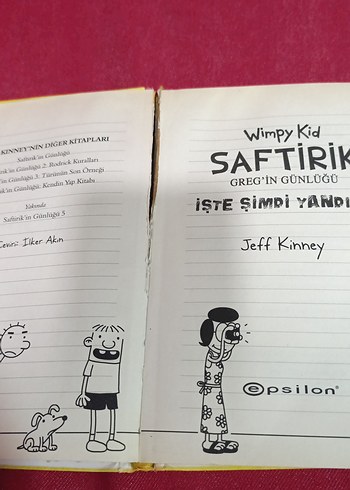 KINNEY'NİN DİĞER KİTAPLARI
Saftirik'in Günlüğü
Günlüğü 2: Rodrick Kuralları
Günlüğü 3: Türünün Son Örneği
Günlüğü: Kendin Yap Kitabı
Yakında
Saftirik'in Günlüğü 5
Çeviri: İlker Akın
Wimpy Kid
SAFTİRİK
GREG'İN GÜNLÜĞÜ
İŞTE ŞİMDİ YANDI
Jeff Kinney
epsilon®